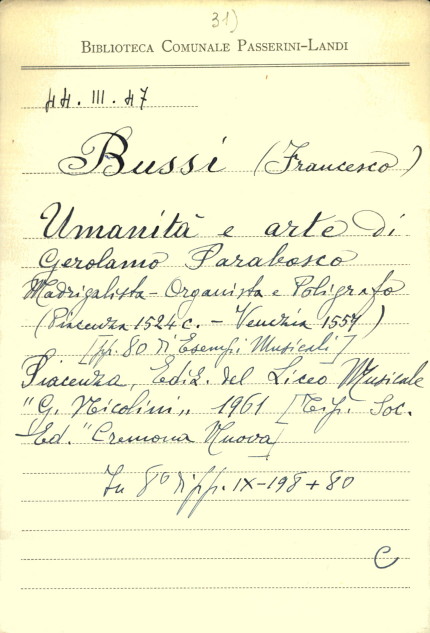 31)
BIBLIOTECA COMUNALE PASSERINI-LANDI
HH. III. 47
Bussi (Francesco)
Umanità e arte di
Gerolamo Parabosco
Madrigalista - Organista e Poligrafo
(Piacenza 1524 c. - Venezia 1557)
[pp. 80 di Esempi Musicali]
Piacenza, Ediz. del Liceo Musicale
"G. Nicolini" 1961 [Tip. Soc.
Ed. "Cremona Nuova]
In 8° di pp. IX-198 + 80
C